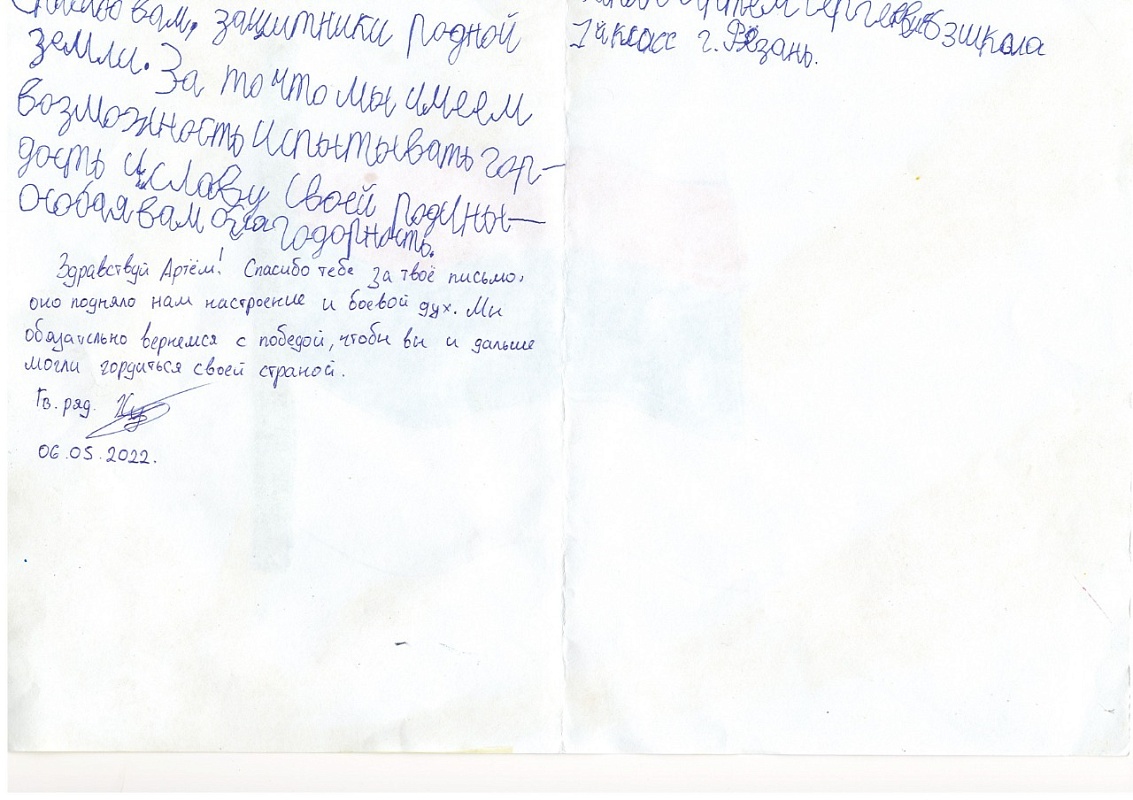 Спасибо вам, защитники родной
земли. За то что мы имеем
возможность испытывать гор-
дость и славу своей Родины—
особая вам благодорность.
Здравствуй Артём! Спасибо тебе за твоё письмо,
оно подняло нам настроение и боевой дух. Мы
обязательно вернемся с победой, чтобы вы и дальше
могли гордиться своей страной.
Гв. ряд.
06.05.2022.
Артём Сергеевич 63 школа
1й класс г. Рязань.